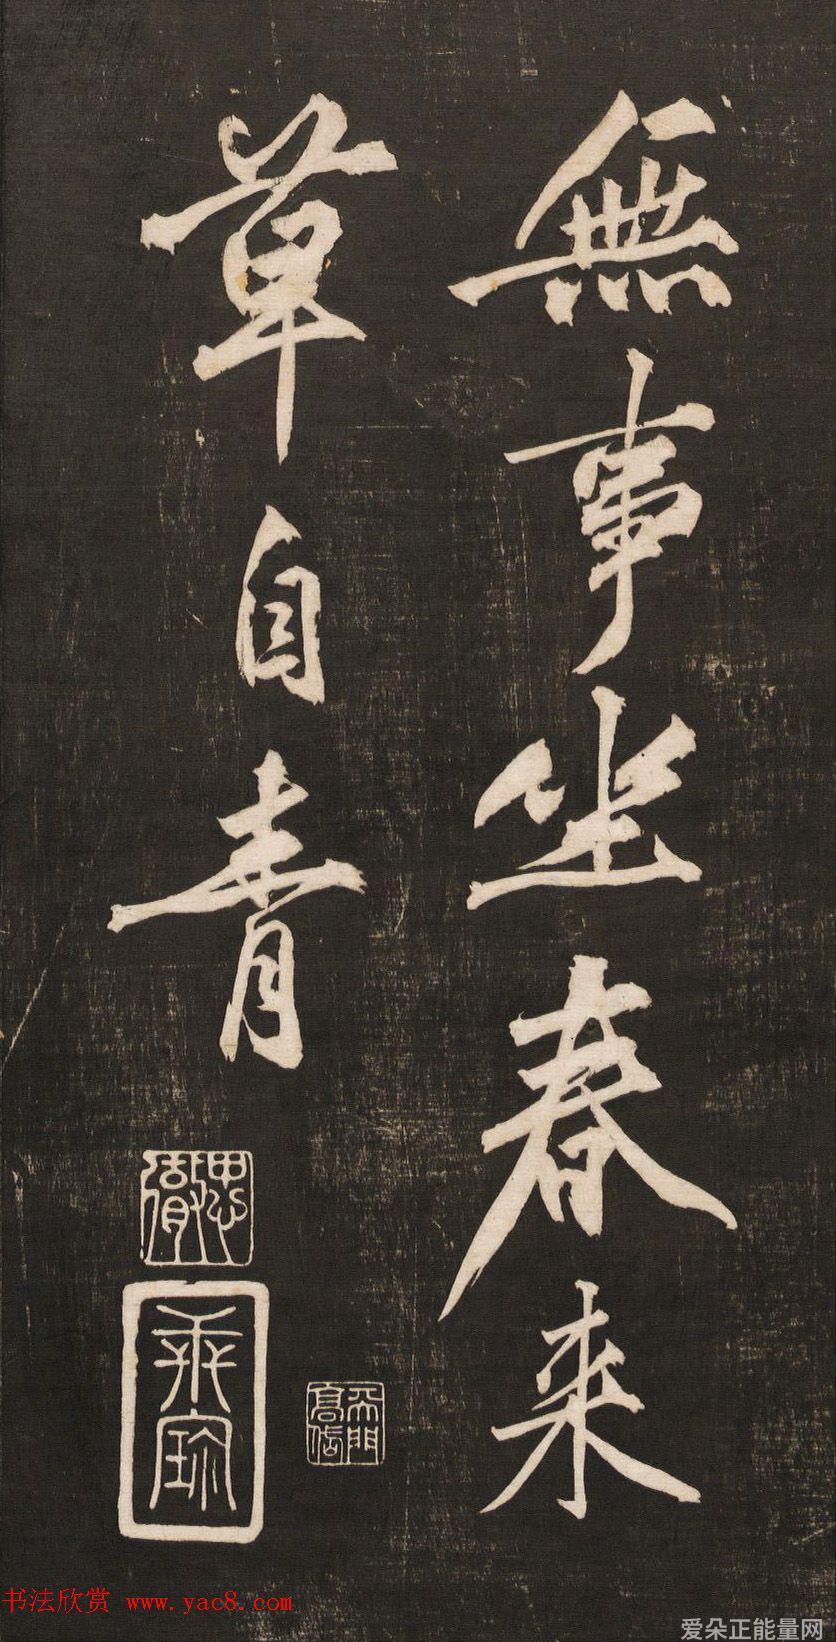 無事坐春来
草自青
书法欣赏 www.yac8.com
爱朵正能量网